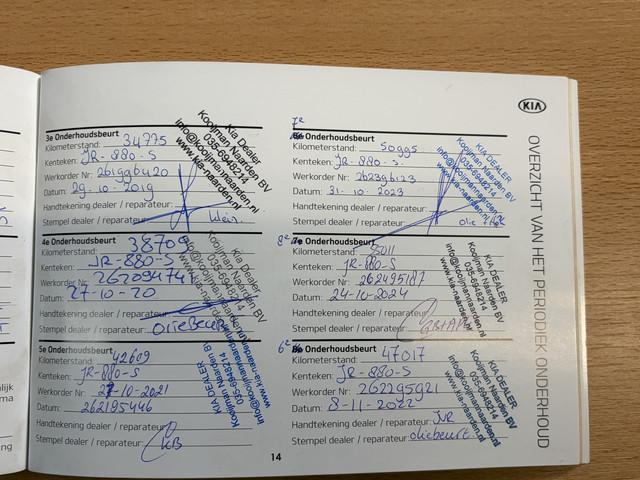 3e Onderhoudsbeurt
Kilometerstand: 34775
Kenteken: JR-880-S
Werkorder Nr: 
Datum: 29-10-2019
Handtekening dealer / reparateur:
Stempel dealer / reparateur: klein.
Kia Dealer
Kooijman Naarden BV
035-6948214
info@kooijmannaarden.nl
www.kia-naarden.nl
4e Onderhoudsbeurt 38709
Kilometerstand:
Kenteken: JR-880-S
Werkorder Nr: 26209474
Datum: 27-10-20
Handtekening dealer / reparateur:
Stempel dealer / reparateur: OLIEBEURT
Kia Dealer
Kooijman Naarden BV
035-6948214
5e Onderhoudsbeurt
Kilometerstand: 42609
Kenteken: JR-880-S
Werkorder Nr: 27-10-2021
Datum: 262195446
Handtekening dealer / reparateur:
Stempel dealer / reparateur: KB
KIA DEALER
Kooijman Naarden BV
035-6948214
info@kooijmannaarden.nl
www.kia-naarden.nl
14
7e
Onderhoudsbeurt
Kilometerstand:
Kenteken: JR-880-S.
Werkorder Nr:
Datum: 31-10-2023
Handtekening dealer / reparateur:
Stempel dealer / reparateur: olie
KIA DEALER
Kooijman Naarden BV
035-6948214
info@kooijmannaarden.nl
www.kia-naarden.nl
8e 7e Onderhoudsbeurt
Kilometerstand:
Kenteken: JR-880-S
Werkorder Nr: 262495187
Datum: 24-10-2024
Handtekening dealer / reparateur:
Stempel dealer / reparateur:
KIA DEALER
Kooijman Naarden BV
035-6948214
info@kooijmannaarden.nl
www.kia-naarden.nl
6e Onderhoudsbeurt
Kilometerstand: 47017
Kenteken: JR-880-S
Werkorder Nr: 262295921
Datum: 8-11-2022
Handtekening dealer / reparateur: JVR
Stempel dealer / reparateur: oliebeurt.
KIA DEALER
Kooijman Naarden BV
035-6948214
info@kooijmannaarden.nl
www.kia-naarden.nl
KIA
OVERZICHT VAN HET PERIODIEK ONDERHOUD